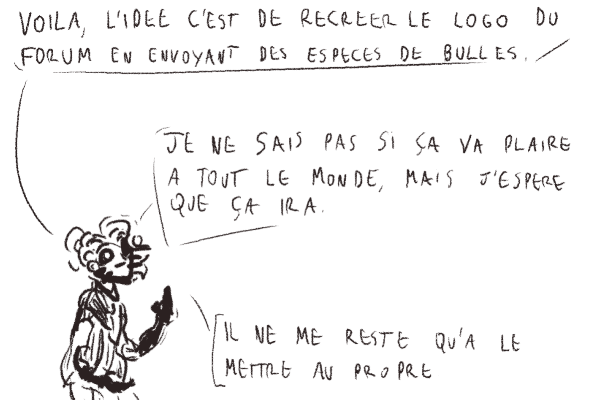 VOILA, L'IDEE C'EST DE RECREER LE LOGO DU
FORUM EN ENVOYANT DES ESPECES DE BULLES.
JE NE SAIS PAS SI ÇA VA PLAIRE
A TOUT LE MONDE, MAIS J'ESPERE
QUE ÇA IRA.
IL NE ME RESTE QU'A LE
METTRE AU PROPRE